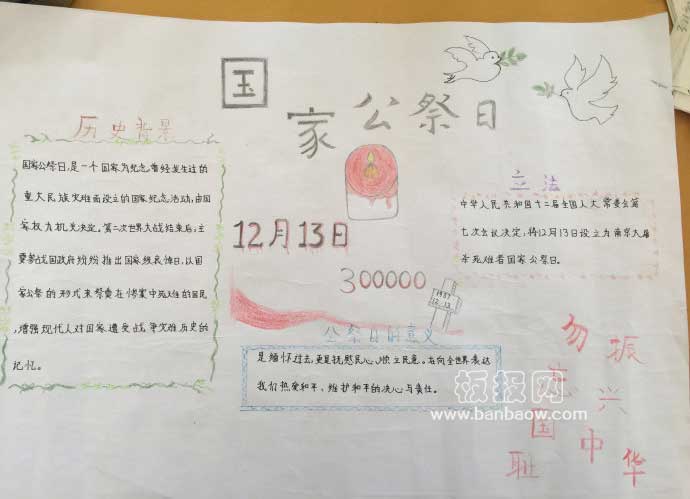 国家公祭日
历史背景
国家公祭日,是一个国家为纪念曾经发生过的
重大民族灾难而设立的国家纪念活动,由国
家权力机关决定。第二次世界大战结束后,主
要参战国政府纷纷推出国家级哀悼日,以国
家公祭的形式来祭奠在惨案中死难的国民
,增强现代人对国家遭受战争灾难历史的
记忆。
12月13日
300000
1937
12.13
立法
中华人民共和国十二届全国人大常委会第
七次会议决定,将12月13日设立为南京大屠
杀死难者国家公祭日。
公祭日的意义
是缅怀过去,更是抚慰民心、顺应民意。在向全世界表达
我们热爱和平、维护和平的决心与责任。
勿忘国耻
振兴中华
板报网
www.banbaow.com